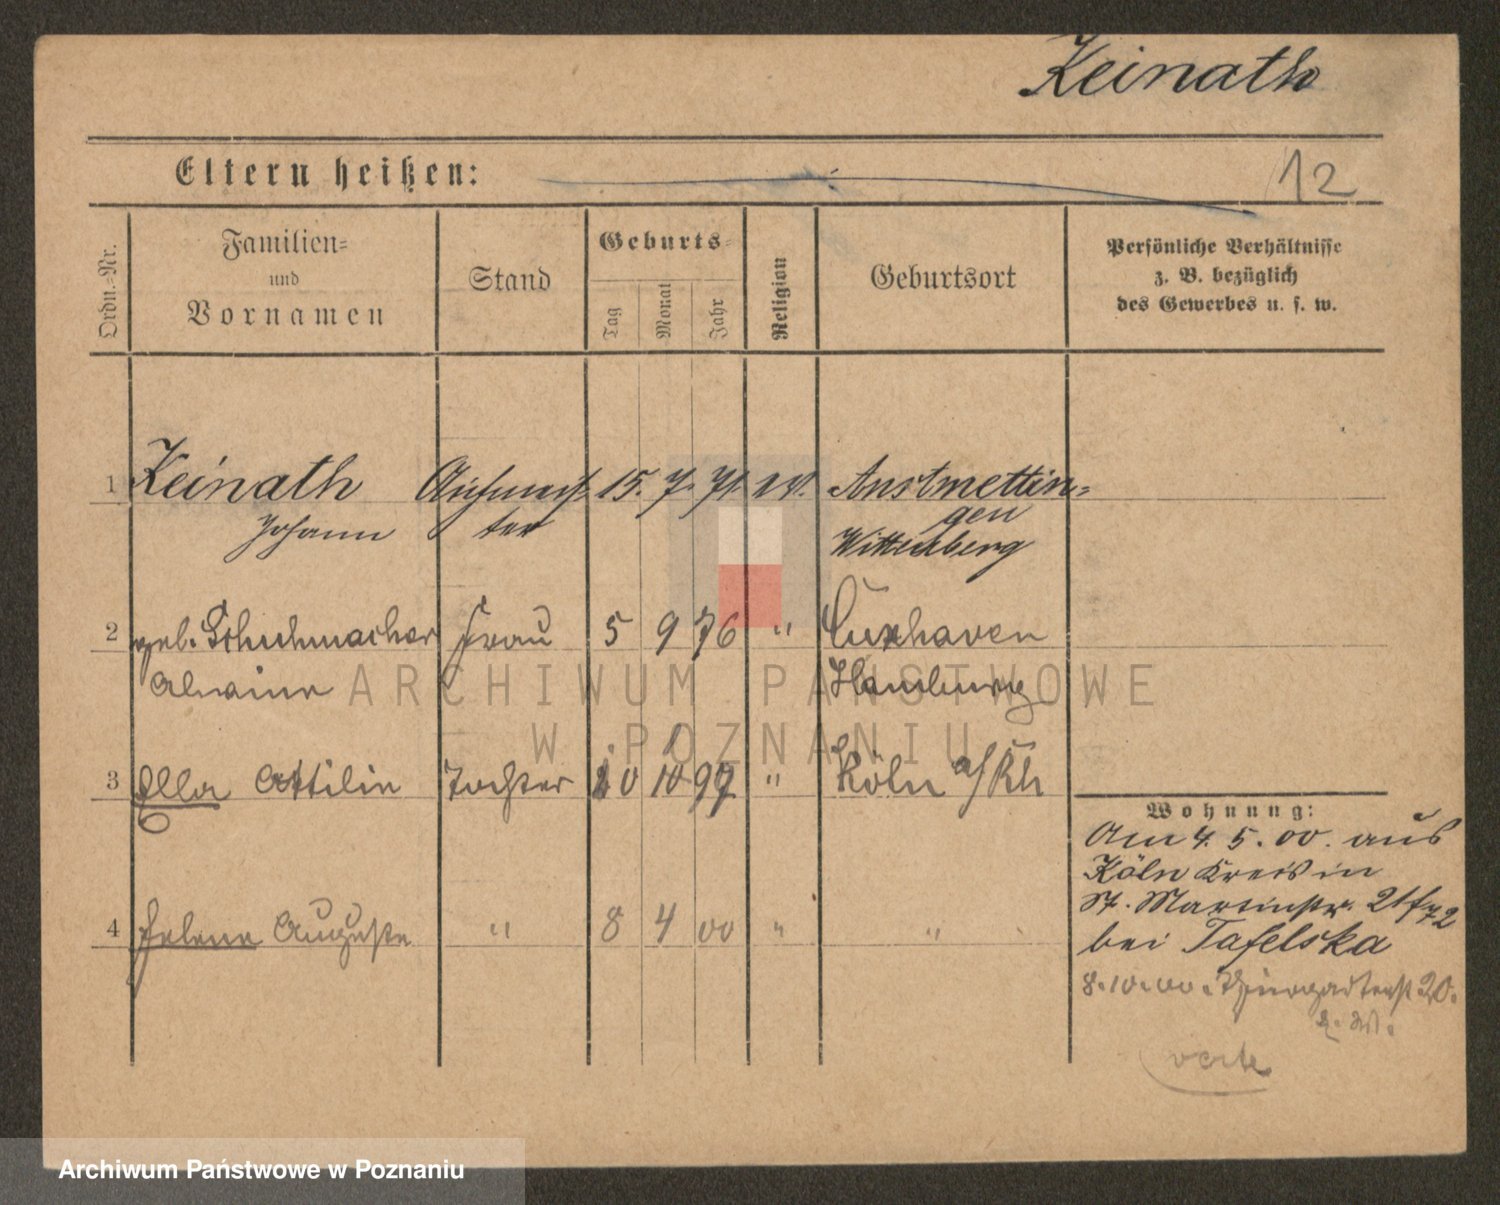 Keinath
Eltern heißen:
12
Ordn.-Nr.
Familien-
und
Vornamen
Stand
Geburts-
Tag
Monat
Jahr
Religion
Geburtsort
Persönliche Verhältnisse
z. B. bezüglich
des Gewerbes u. s. w.
1 Keinath 15. 7. 71. ev. Anstmettin=
Johann ter gen
Wittenberg
2 geb. Schuhmacher Frau 5 9 76 " Cuxhaven
Hamburg
3 Ella Ottilie Tochter 10 97 " Köln a/Rh
4 Helene Auguste " 8 4 00 " "
Wohnung:
Am 4. 5. 00. aus
Köln Kreis in
St. Martinstr.
bei Tafelska
8.10.00. 20.
verte
ARCHIWUM PAŃSTWOWE
W POZNANIU
Archiwum Państwowe w Poznaniu